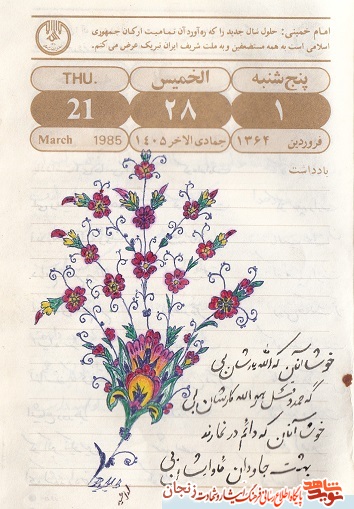 امام خمینی: حلول سال جدید را که ره‌آورد آن تمامیت ارکان جمهوری
اسلامی است به همه مستضعفین و به ملت شریف ایران تبریک عرض می‌کنم.
پنج‌شنبه الخمیس THU.
۱ ۲۸ 21
فروردین ۱۳۶۴ جمادی‌الاخر ۱۴۰۵ March 1985
یادداشت
خوشا آنان که الله یارشان بی
که حمد و قل هو الله کارشان بی
خوشا آنان که دائم در نمازند
بهشت جاودان مأوایشان بی
نوید شاهد پایگاه اطلاع رسانی فرهنگ ایثار و شهادت زنجان